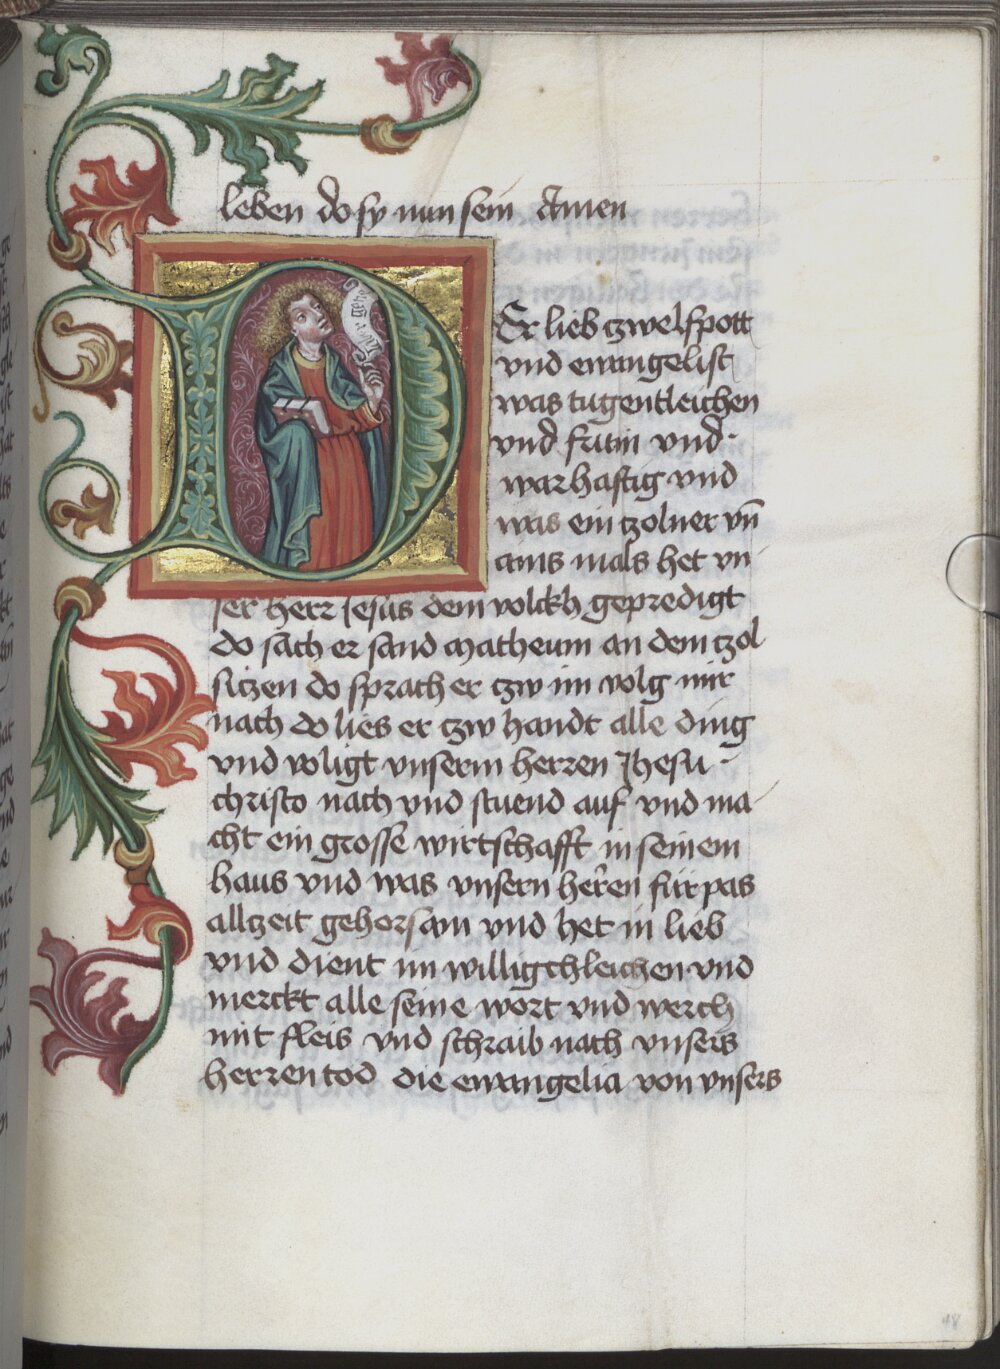 leben do sy nun sein Amen
Er lieb zwelfpott
vnd ewangelist
was tugentleichen
vnd frum vnd
warhafftig vnd
was ein zolner vn̄
ains mals het vn
ser herr Jesus dem volckh gepredigt
do sach er sand Matheum an dem zol
sitzen do sprach er zw im volg mir
nach do lies er zw handt alle ding
vnd voligt vnserm herren Jhesu
christo nach vnd stuend auf vnd ma
cht ein grosse wirtschafft in seinem
haus vnd was vnsern herren fürpas
allzeit gehorsam vnd het in lieb
vnd dient im willigchleichen vnd
merckt alle seine wort vnd werch
mit fleis vnd schraib nach vnsers
herren tod die ewangelia von vnsers